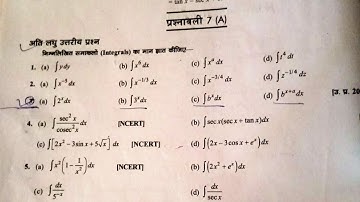 प्रश्नावली 7 (A)
अति लघु उत्तरीय प्रश्न
निम्नलिखित समाकलों (Integrals) का मान ज्ञात कीजिए—
1. (a) ∫ y dy (b) ∫ x⁶ dx (c) ∫ xⁿ dx (d) ∫ t⁴ dt
2. (a) ∫ x⁻⁵ dx (b) ∫ x⁻¹ᐟ³ dx (c) ∫ x⁻³ᐟ⁴ dx (d) ∫ z⁻¹ᐟ⁴ dz
(a) ∫ 2ˣ dx (b) ∫ 3ˣ dx (c) ∫ bˣ dx (d) ∫ bˣ⁺ᵃ dx [उ. प्र. 20
4. (a) ∫ sec² x / cosec² x dx [NCERT] (b) ∫ sec x (sec x + tan x) dx
(c) ∫ [2x² − 3 sin x + 5√x] dx [NCERT] (d) ∫ (2x − 3 cos x + eˣ) dx
5. (a) ∫ x² (1 − 1/x²) dx [NCERT] (b) ∫ (2x² + eˣ) dx
(c) ∫ dx / 5⁻ˣ (d) ∫ dx / sec x